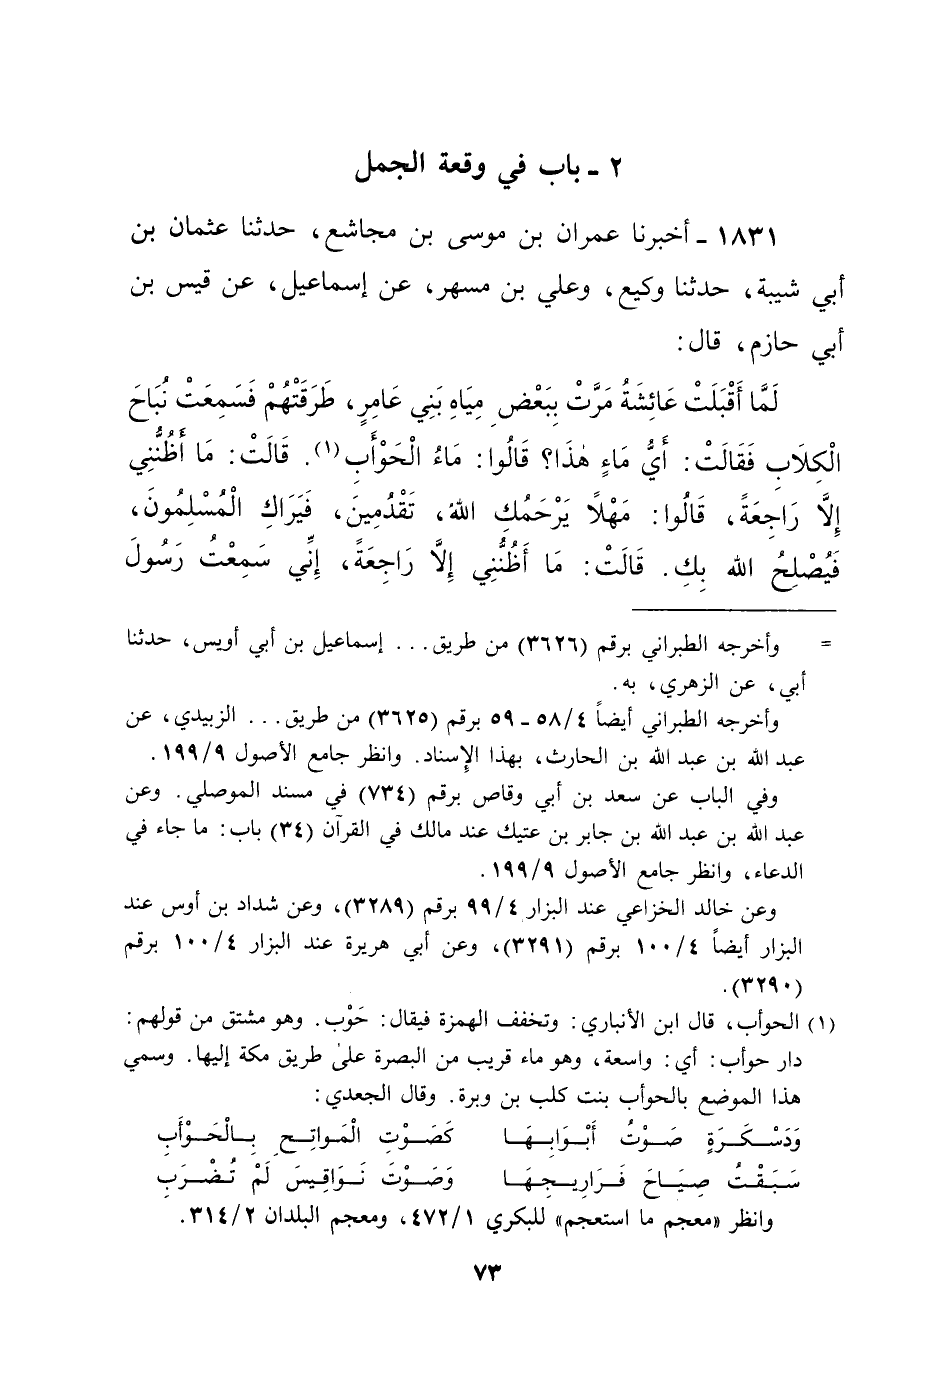 ٢ - باب في وقعة الجمل
١٨٣١ - أخبرنا عمران بن موسى بن مجاشع، حدثنا عثمان بن
أبي شيبة، حدثنا وكيع، وعلي بن مسهر، عن إسماعيل، عن قيس بن
أبي حازم، قال:
لَمَّا أَقْبَلَتْ عَائِشَةُ مَرَّتْ بِبَعْضِ مِيَاهِ بَنِي عَامِرٍ، طَرَقَتْهُمْ فَسَمِعَتْ نُبَاحَ
الْكِلَابِ فَقَالَتْ: أَيُّ مَاءٍ هٰذَا؟ قَالُوا: مَاءُ الْحَوْأَبِ(١). قَالَتْ: مَا أَظُنُّنِي
إِلَّا رَاجِعَةً، قَالُوا: مَهْلًا يَرْحَمُكِ اللهُ، تَقْدُمِينَ، فَيَرَاكِ الْمُسْلِمُونَ،
فَيُصْلِحُ الله بِكِ. قَالَتْ: مَا أَظُنُّنِي إِلَّا رَاجِعَةً، إِنِّي سَمِعْتُ رَسُولَ
= وأخرجه الطبراني برقم (٣٦٢٦) من طريق... إسماعيل بن أبي أويس، حدثنا
أبي، عن الزهري، به.
وأخرجه الطبراني أيضاً ٥٨/٤ - ٥٩ برقم (٣٦٢٥) من طريق... الزبيدي، عن
عبد الله بن عبد الله بن الحارث، بهذا الإسناد. وانظر جامع الأصول ١٩٩/٩.
وفي الباب عن سعد بن أبي وقاص برقم (٧٣٤) في مسند الموصلي. وعن
عبد الله بن عبد الله بن جابر بن عتيك عند مالك في القرآن (٣٤) باب: ما جاء في
الدعاء، وانظر جامع الأصول ١٩٩/٩.
وعن خالد الخزاعي عند البزار ٩٩/٤ برقم (٣٢٨٩)، وعن شداد بن أوس عند
البزار أيضاً ١٠٠/٤ برقم (٣٢٩١)، وعن أبي هريرة عند البزار ١٠٠/٤ برقم
(٣٢٩٠).
(١) الحوأب، قال ابن الأنباري: وتخفف الهمزة فيقال: حَوْب. وهو مشتق من قولهم:
دار حوأب: أي: واسعة، وهو ماء قريب من البصرة علىٰ طريق مكة إليها. وسمي
هذا الموضع بالحوأب بنت كلب بن وبرة. وقال الجعدي:
وَدَسْكَرَةٍ صَوْتُ أَبْوَابِهَا كَصَوْتِ الْمَوَاتِحِ بِالْحَوْأَبِ
سَبَقْتُ صِيَاحَ فَرَارِيجِهَا وَصَوْتَ نَوَاقِيسَ لَمْ تُضْرَبِ
وانظر «معجم ما استعجم» للبكري ٤٧٢/١، ومعجم البلدان ٣١٤/٢.
٧٣